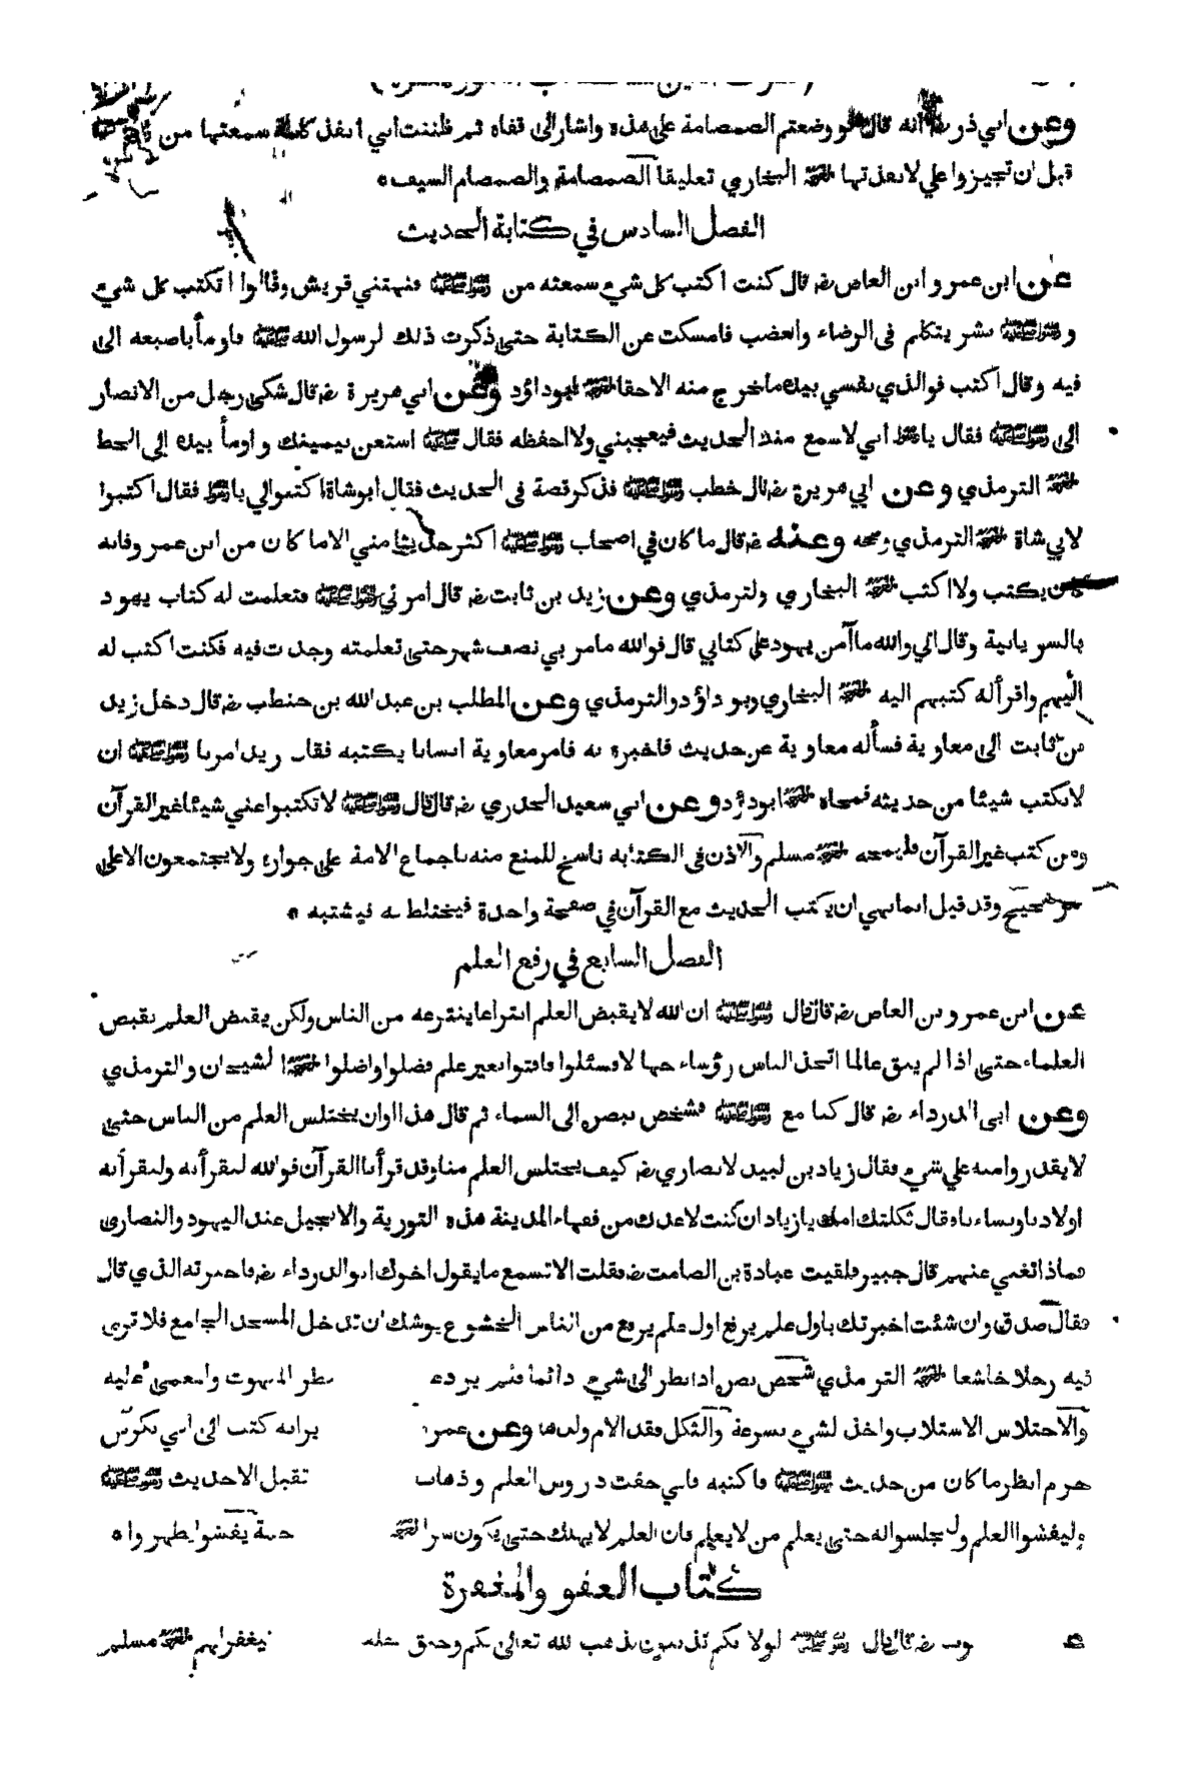 وعن ابي ذر رضه انه قال لو وضعتم الصمصامة على هذه واشار الى قفاه ثم ظننت اني انفذ كلمة سمعتها من
قبل ان تجيزوا علي لانفذتها اخرجه البخاري تعليقا الصمصامة والصمصام السيف ٥
الفصل السادس في كتابة الحديث
عن ابن عمرو ابن العاص رضه قال كنت اكتب كل شيء سمعته من رسول الله ﷺ فنهتني قريش وقالوا اتكتب كل شيء
ورسول الله ﷺ بشر يتكلم في الرضاء والغضب فامسكت عن الكتابة حتى ذكرت ذلك لرسول الله ﷺ فاومأ باصبعه الى
فيه وقال اكتب فوالذي نفسي بيده ما خرج منه الا حقا اخرجه ابوداؤد وعن ابي هريرة رضه قال شكى رجل من الانصار
الى رسول الله ﷺ فقال يا رسول الله اني لاسمع منك الحديث فيعجبني ولا احفظه فقال ﷺ استعن بيمينك واومأ بيده الى الخط
اخرجه الترمذي وعن ابي هريرة رضه قال خطب رسول الله ﷺ فذكر قصة في الحديث فقال ابوشاة اكتبوا لي يا رسول الله فقال اكتبوا
لابي شاة اخرجه الترمذي وصححه وعنه رضه قال ما كان في اصحاب رسول الله ﷺ اكثر حديثا مني الا ما كان من ابن عمرو فانه
كان يكتب ولا اكتب اخرجه البخاري والترمذي وعن زيد بن ثابت رضه قال امرني رسول الله ﷺ فتعلمت له كتاب يهود
بالسريانية وقال اني والله ما آمن يهود على كتابي قال فوالله مامر بي نصف شهر حتى تعلمته وجدت فيه فكنت اكتب له
اليهم واقرأ له كتبهم اليه اخرجه البخاري وابو داؤد والترمذي وعن المطلب بن عبد الله بن حنطب رضه قال دخل زيد
بن ثابت الى معاوية فسأله معاوية عن حديث فاخبره به فامر معاوية انسانا يكتبه فقال زيد امرنا رسول الله ﷺ ان
لا نكتب شيئا من حديثه فمحاه اخرجه ابوداؤد وعن ابي سعيد الخدري رضه قال قال رسول الله ﷺ لا تكتبوا عني شيئا غير القرآن
ومن كتب غير القرآن فليمحه اخرجه مسلم والاذن في الكتابه ناسخ للمنع منه باجماع الامة على جوازه ولا يجتمعون الا على
امر صحيح وقد قيل انما نهي ان يكتب الحديث مع القرآن في صفحة واحدة فيختلط به فيشتبه ٥
الفصل السابع في رفع العلم
عن ابن عمرو بن العاص رضه قال قال رسول الله ﷺ ان الله لا يقبض العلم انتزاعا ينتزعه من الناس ولكن يقبض العلم بقبض
العلماء حتى اذا لم يبق عالما اتخذ الناس رؤساء جهالا فسئلوا فافتوا بغير علم فضلوا واضلوا اخرجه الشيخان والترمذي
وعن ابي الدرداء رضه قال كنا مع رسول الله ﷺ فشخص ببصره الى السماء ثم قال هذا اوان يختلس العلم من الناس حتى
لا يقدروا منه على شيء فقال زياد بن لبيد الانصاري رضه كيف يختلس العلم منا وقد قرأنا القرآن فوالله لنقرأنه ولنقرأنه
اولادنا ونساءنا وقال ثكلتك امك يا زياد ان كنت لاعدك من فقهاء المدينة هذه التورية والانجيل عند اليهود والنصارى
فماذا تغني عنهم قال جبير فلقيت عبادة بن الصامت رضه فقلت الا تسمع ما يقول اخوك ابو الدرداء رضه فاخبرته الذي قال
فقال صدق وان شئت اخبرتك باول علم يرفع اول علم يرفع من الناس الخشوع يوشك ان تدخل المسجد الجامع فلا ترى
فيه رجلا خاشعا اخرجه الترمذي شخص بصره اذا نظر الى شيء دائما فلم يردعه نظر المبهوت والمغمى عليه
والاختلاس الاستلاب واخذ لشيء بسرعة والثكل فقد الام ولدها وعن عمر انه كتب الى ابي بكر بن
حزم انظر ما كان من حديث رسول الله ﷺ فاكتبه فاني خفت دروس العلم وذهاب تقبل الا حديث رسول الله ﷺ
وليفشوا العلم وليجلسوا له حتى يعلم من لا يعلم فان العلم لا يهلك حتى يكون سرا اخرجه يفشوا يظهروا ٥
كتاب العفو والمغفرة
رضه قال قال رسول الله ﷺ لولا انكم تذنبون لذهب الله تعالى بكم وخلق فيغفر لهم اخرجه مسلم